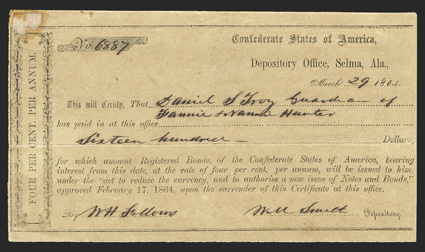 FOUR PER CENT PER ANNUM.
No 6887
Confederate States of America,
Depository Office, Selma, Ala.,
March 29 1864.
This will Certify, That Daniel S Troy Guardian of
Fannie & Nannie Hunter
has paid in at this office
Sixteen hundred Dollars,
for which amount Registered Bonds, of the Confederate States of America, bearing
interest from this date, at the rate of four per cent. per annum, will be issued to him,
under the "act to reduce the currency, and to authorise a new issue of Notes and Bonds,"
approved February 17, 1864, upon the surrender of this Certificate at this office.
By WH Fellows W M Smith Depositary.